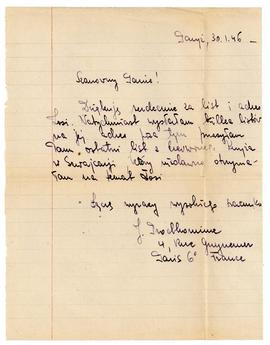 Paryż, 30.1.46 -
Szanowny Panie!
Dziękuję serdecznie za list i adres
Zosi. Natychmiast wysłałam kilka listów
na jej adres poza tym przesyłam
Panu ostatni list z Czerwonego Krzyża
w Szwajcarji który niedawno otrzyma-
łam na temat Zosi
Łączę wyrazy wysokiego szacunku
J. Prodhomme
4, Rue Guynemer
Paris 6e
France